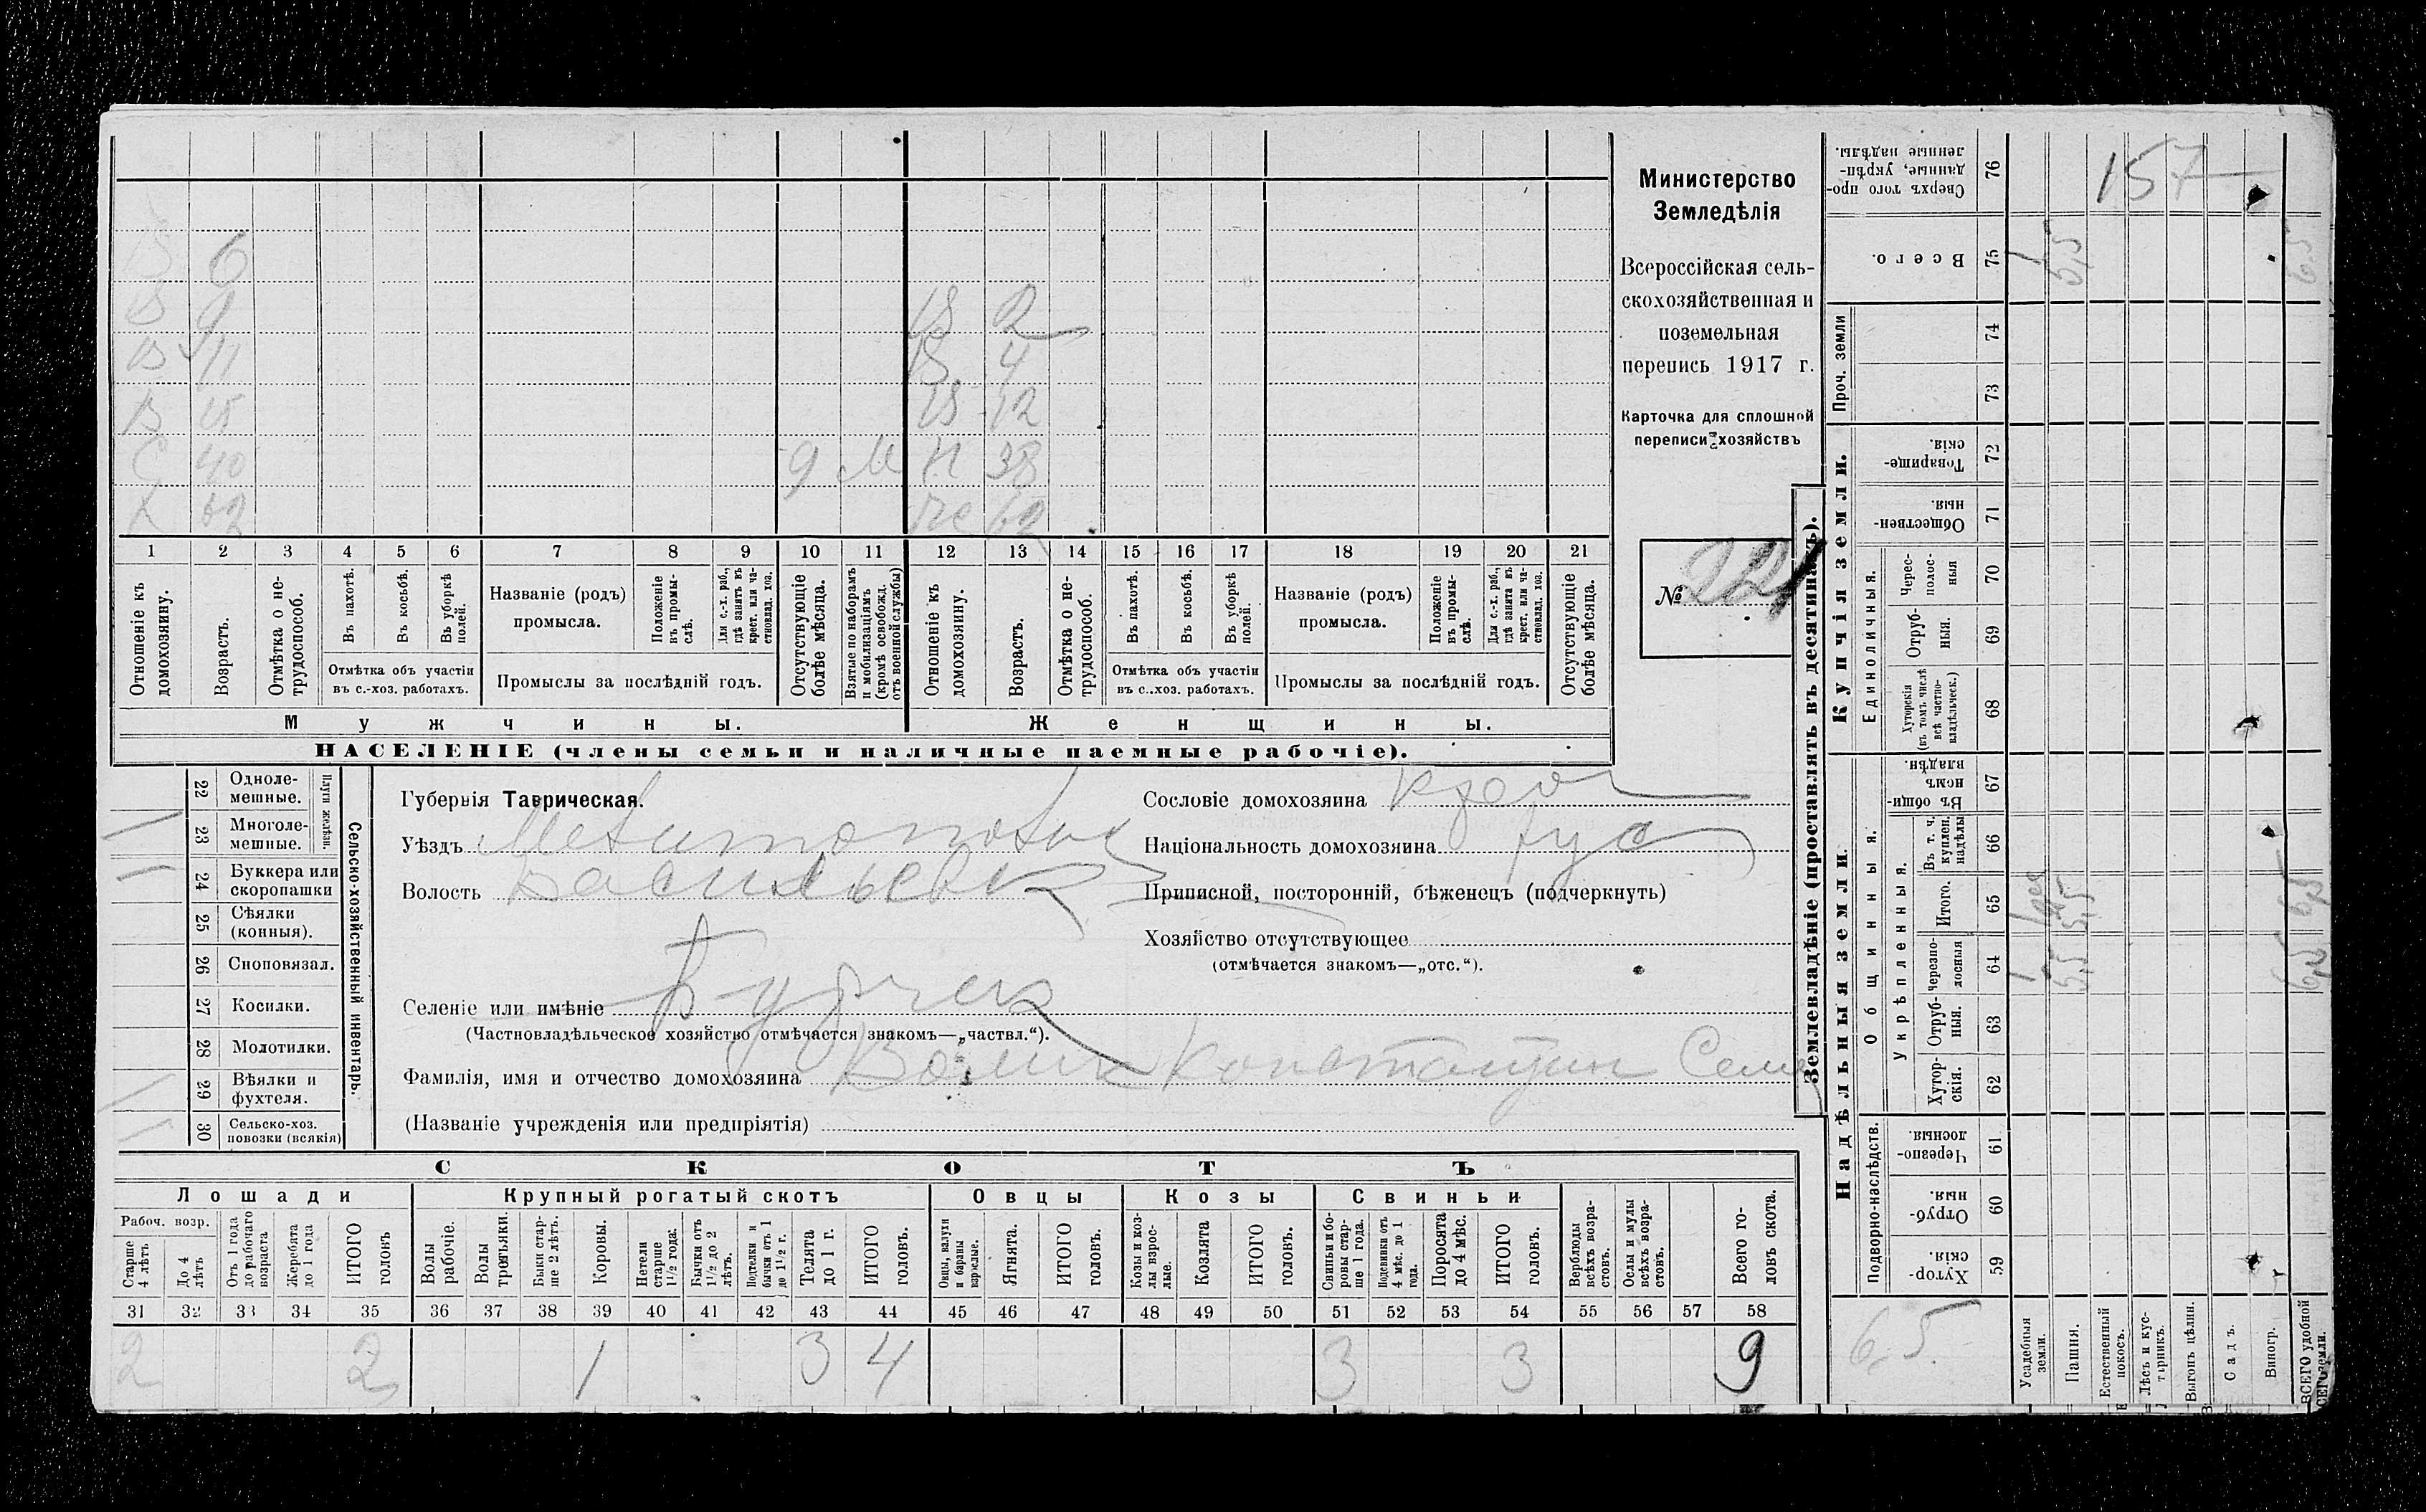 157
В 6
В 9 В 2
В 11 В 4
В 15 В 12
С 40 9 М Н 38
Х 62 Же 62
1 2 3 4 5 6 7 8 9 10 11 12 13 14 15 16 17 18 19 20 21
Отношеніе къ домохозяину.
Возрастъ.
Отмѣтка о не-
трудоспособ.
Въ пахотѣ.
Въ косьбѣ.
Въ уборкѣ
полей.
Отмѣтка объ участіи
въ с.-хоз. работахъ.
Названіе (родъ)
промысла.
Положеніе
въ промы-
слѣ.
Для с.-х. раб.,
гдѣ занятъ въ
крест. или ча-
стновлад. хоз.
Промыслы за послѣдній годъ.
Отсутствующіе
болѣе мѣсяца.
Взятые по наборамъ
и мобилизаціямъ
(кромѣ освобожд.
отъ военной службы)
Отношеніе къ
домохозяину.
Возрастъ.
Отмѣтка о не-
трудоспособ.
Въ пахотѣ.
Въ косьбѣ.
Въ уборкѣ
полей.
Отмѣтка объ участіи
въ с.-хоз. работахъ.
Названіе (родъ)
промысла.
Положеніе
въ промы-
слѣ.
Для с.-х. раб.,
гдѣ занята въ
крест. или ча-
стновлад. хоз.
Промыслы за послѣдній годъ.
Отсутствующіе
болѣе мѣсяца.
Мужчины. Женщины.
НАСЕЛЕНІЕ (члены семьи и наличные наемные рабочіе).
Министерство
Земледѣлія
Всероссійская сель-
скохозяйственная и
поземельная
перепись 1917 г.
Карточка для сплошной
переписи хозяйствъ
№ 221
Сельско-хозяйственный инвентарь.
Плуги желѣзн.
22 Одноле-
мешные.
23 Многоле-
мешные.
24 Буккера или
скоропашки
25 Сѣялки
(конныя).
26 Сноповязал.
27 Косилки.
28 Молотилки.
29 Вѣялки и
фухтеля.
30 Сельско-хоз.
повозки (всякія)
Губернія Таврическая.
Уѣздъ Мелитопольск
Волость Васильевка
Селеніе или имѣніе Бурчек
(Частновладѣльческое хозяйство отмѣчается знакомъ—„частвл.“).
Фамилія, имя и отчество домохозяина Волик Константин Сем
(Названіе учрежденія или предпріятія)
Сословіе домохозяина
Національность домохозяина рус
Приписной, посторонній, бѣженецъ (подчеркнуть)
Хозяйство отсутствующее
(отмѣчается знакомъ—„отс.“).
СКОТЪ
Лошади Крупный рогатый скотъ Овцы Козы Свиньи
Рабоч. возр.
Старше
4 лѣтъ
До 4
лѣтъ
Отъ 1 года
до рабочаго
возраста
Жеребята
до 1 года
ИТОГО
головъ
Волы
рабочіе.
Волы
третьяки.
Быки стар-
ше 2 лѣтъ.
Коровы.
Нетели
старше
1½ года.
Бычки отъ
1½ до 2
лѣтъ.
Подтелки и
бычки отъ 1
до 1½ г.
Телята
до 1 г.
ИТОГО
головъ.
Овцы, валухи
и бараны
взрослые.
Ягнята.
ИТОГО
головъ.
Козы и коз-
лы взрос-
лые.
Козлята
ИТОГО
головъ.
Свиньи и бо-
ровы стар-
ше 1 года.
Подсвинки отъ
4 мѣс. до 1
года.
Поросята
до 4 мѣс.
ИТОГО
головъ.
Верблюды
всѣхъ возра-
стовъ.
Ослы и мулы
всѣхъ возра-
стовъ.
Всего го-
ловъ скота.
31 32 33 34 35 36 37 38 39 40 41 42 43 44 45 46 47 48 49 50 51 52 53 54 55 56 57 58
2 2 1 3 4 3 3 9
Землевладѣніе (проставлять въ десятинахъ).
Купчія земли.
Надѣльныя земли.
Проч. земли
Единоличныя.
Общинныя.
Укрѣпленныя.
Подворно-наслѣдств.
Сверхъ того про-
данные, укрѣп-
ленные надѣлы. 76
Всего. 75 1 5,5 6,5
74
73
Товарище-
скія. 72
Обществен-
ныя. 71
Черес-
полос-
ныя 70
Отруб-
ныя. 69
Хуторскія
(въ томъ числѣ
всѣ частно-
владѣльческ.) 68
Въ общин-
номъ
владѣн. 67
Въ т. ч.
куплен.
надѣлы 66
Итого. 65 1 5,5 6,5
Черезпо-
лосныя 64 1 5,5 6,5
Отруб-
ныя. 63
Хутор-
скія. 62
Черезпо-
лосныя. 61
Отруб-
ныя. 60
Хутор-
скія. 59
6,5
Усадебныя
земли.
Пашня.
Естественный
покосъ.
Лѣсъ и кус-
тарникъ.
Выгонъ цѣлин.
Садъ.
Виногр.
ВСЕГО удобной
земли.